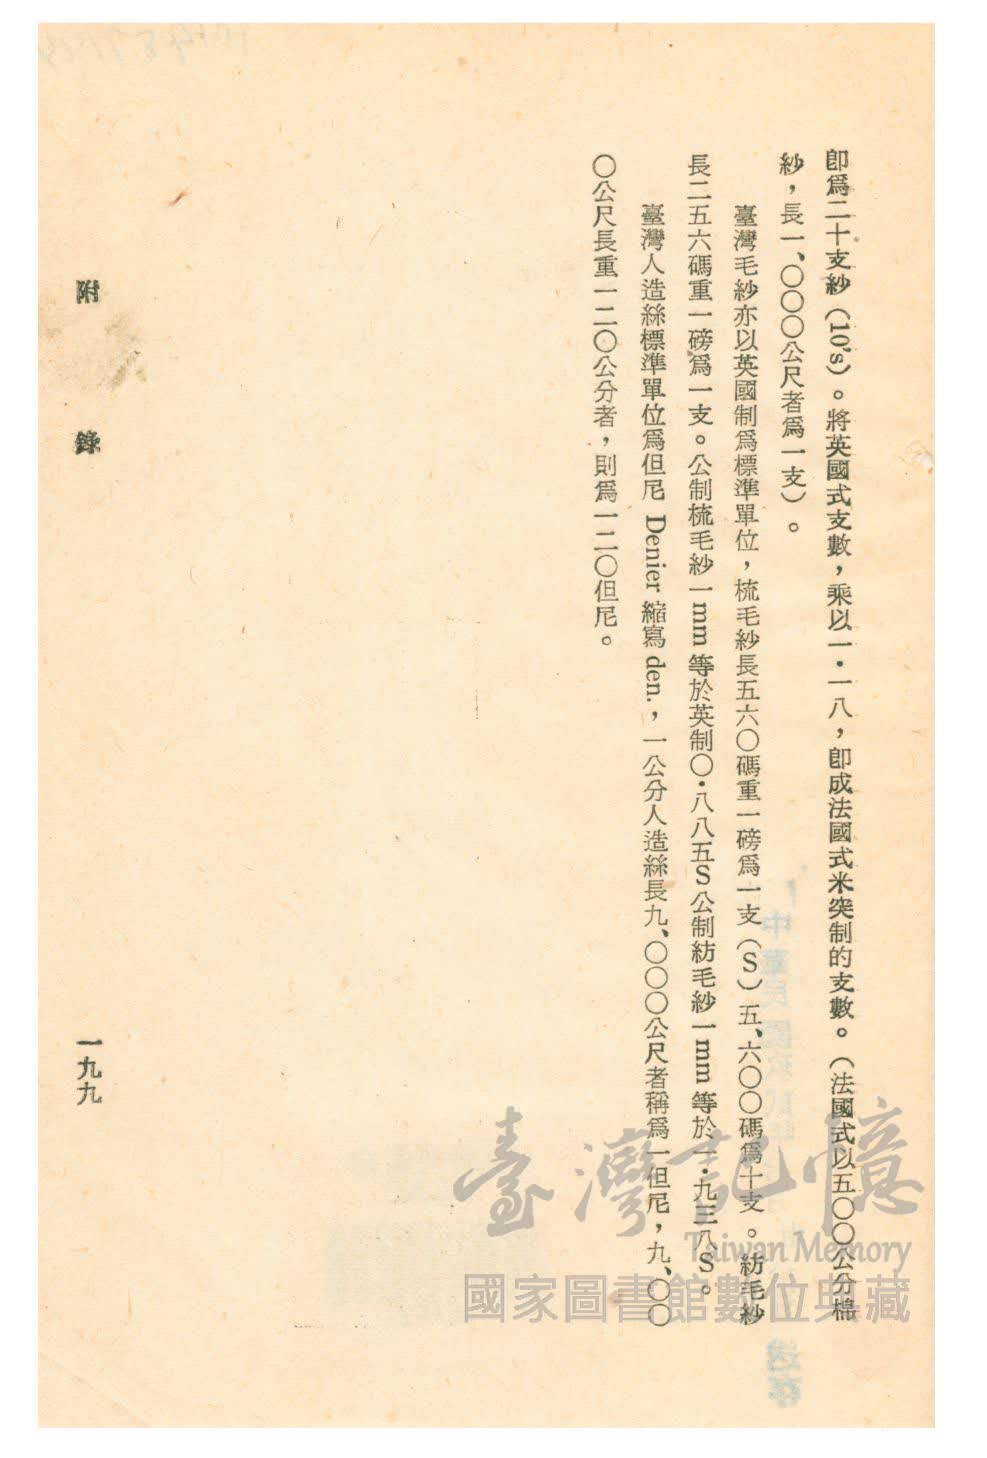 卽爲二十支紗（10's）。將英國式支數，乘以一．一八，卽成法國式米突制的支數。（法國式以五〇〇公分棉
紗，長一、〇〇〇公尺者爲一支）。
臺灣毛紗亦以英國制爲標準單位，梳毛紗長五六〇碼重一磅爲一支（S）五、六〇〇碼爲十支。紡毛紗
長二五六碼重一磅爲一支。公制梳毛紗一mm等於英制〇．八八五S公制紡毛紗一mm等於一．九三八S。
臺灣人造絲標準單位爲但尼 Denier 縮寫 den.，一公分人造絲長九、〇〇〇公尺者稱爲一但尼，九、〇〇
〇公尺長重一二〇公分者，則爲一二〇但尼。
附錄
一九九
臺灣記憶
Taiwan Memory
國家圖書館數位典藏